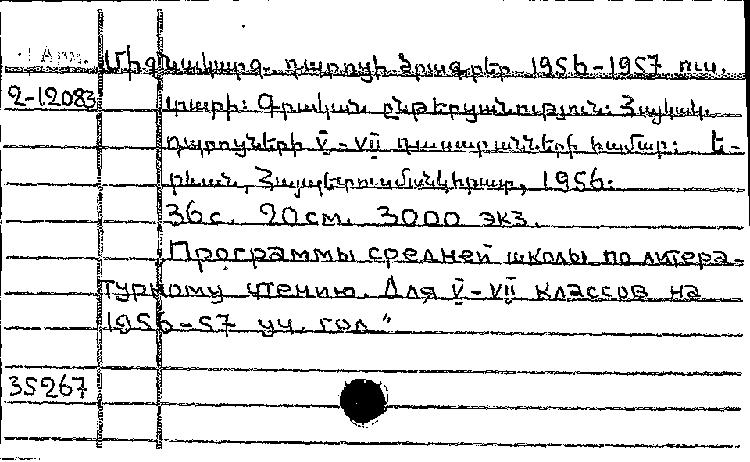 Арм.
Միջնակարգ դպրոցի ծրագրեր 1956-1957 ուս.
2-12083
տարի: Գրական ընթերցանություն: Հայկակ.
դպրոցների V-VII դասարանների համար: Ե-
րևան, Հայպետուսմանկհրատ, 1956.
36 с. 20 см. 3000 экз.
„Программы средней школы по литера-
турному чтению. Для V-VII классов на
1956-57 уч. год“
35267